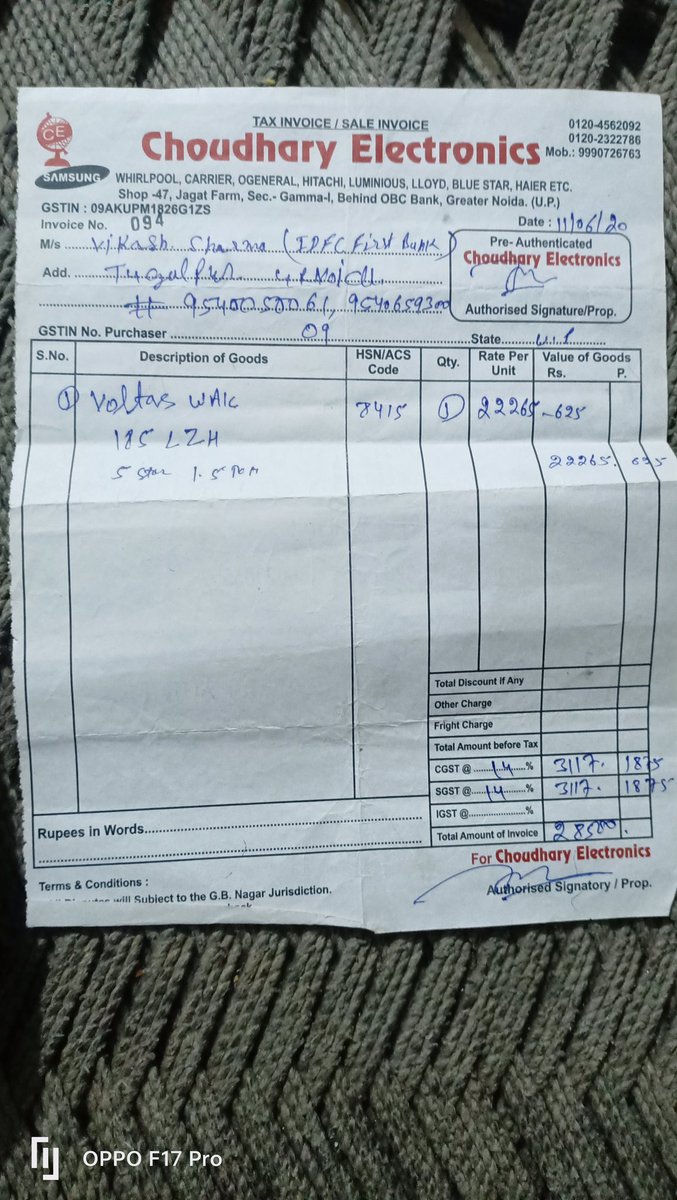 TAX INVOICE / SALE INVOICE
0120-4562092
0120-2322786
Mob.: 9990726763
CE
Choudhary Electronics
SAMSUNG
WHIRLPOOL, CARRIER, OGENERAL, HITACHI, LUMINIOUS, LLOYD, BLUE STAR, HAIER ETC.
Shop -47, Jagat Farm, Sec.- Gamma-I, Behind OBC Bank, Greater Noida. (U.P.)
GSTIN : 09AKUPM1826G1ZS
Invoice No. 094
Date : 11/06/20
M/s Vikash Sharma (IDFC First Bank)
Add. Tugalpur
# 9540050061, 9540659300
Pre- Authenticated
Choudhary Electronics
Authorised Signature/Prop.
GSTIN No. Purchaser 09 State U.P
S.No. Description of Goods HSN/ACS Code Qty. Rate Per Unit Value of Goods Rs. P.
① Voltas WAC 8415 ① 22265-625
185 LZH 22265. 625
5 Star 1.5 Ton
Total Discount if Any
Other Charge
Fright Charge
Total Amount before Tax
CGST @ 14 % 3117. 1875
SGST @ 14 % 3117. 1875
IGST @ %
Total Amount of Invoice 28500.
Rupees in Words
For Choudhary Electronics
Authorised Signatory / Prop.
Terms & Conditions :
will Subject to the G.B. Nagar Jurisdiction.
OPPO F17 Pro